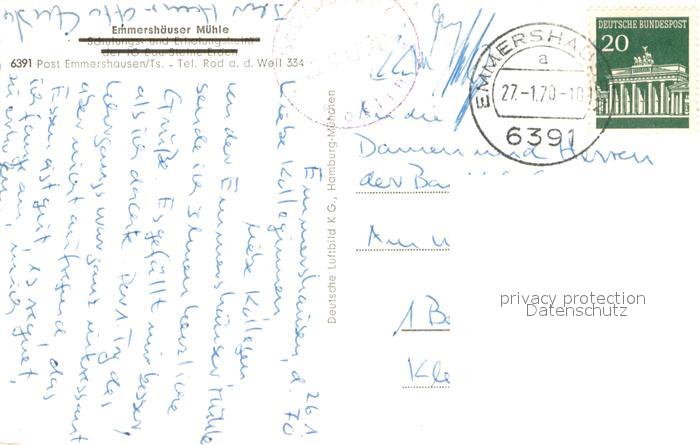 Emmershäuser Mühle
Schulungs- und Erholungsheim
der IG Bau-Steine-Erden
6391 Post Emmershausen/Ts. - Tel. Rod a. d. Weil 334
Emmershausen, d. 26.1.
70
Liebe Kolleginnen,
liebe Kollegen,
von der Emmershäuser Mühle
sende ich Ihnen herzliche
Grüße. Es gefällt mir besser
als ich dachte. Der 1. Tag des
Lehrgangs war ganz interessant
aber nicht aufregend, das
Essen ist gut, es regnet,
Deutsche Luftbild K G., Hamburg-München
EMMERSHAUSEN
a
27.-1.70-10
6391
DEUTSCHE BUNDESPOST
20
An die
Damen und Herren
der Ba
Am
1 Be
Kle
privacy protection
Datenschutz